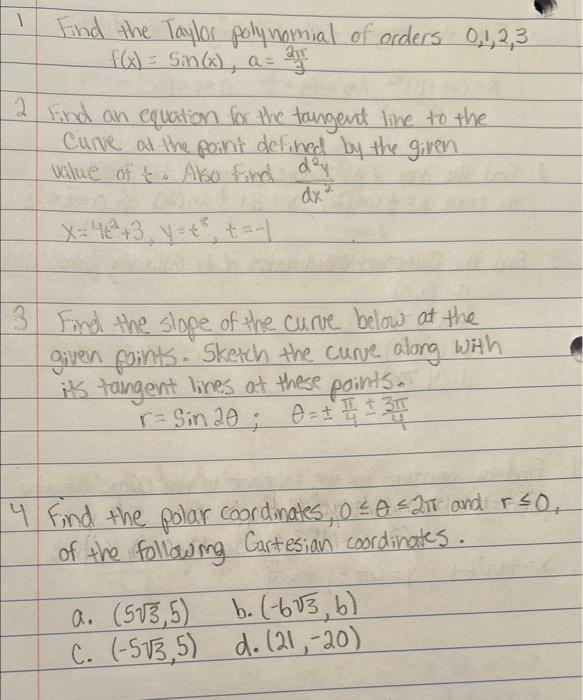 1 Find the Taylor polynomial of orders 0,1,2,3
f(x) = Sin(x), a = 2π/3
2 Find an equation for the tangent line to the
Curve at the point defined by the given
value of t. Also find d²y/dx²
x=4t²+3, y=t⁸, t=-1
3 Find the slope of the curve below at the
given points. Sketch the curve along with
its tangent lines at these points.
r = Sin 2θ ; θ = ± π/4 ± 3π/4
4 Find the polar coordinates, 0 ≤ θ ≤ 2π and r ≤ 0,
of the following Cartesian coordinates.
a. (5√3,5) b. (-6√3,6)
c. (-5√3,5) d. (21,-20)